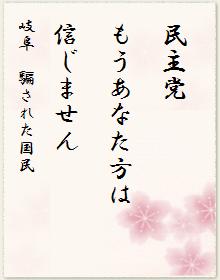 民主党
もうあなた方は
信じません
岐阜　騙された国民